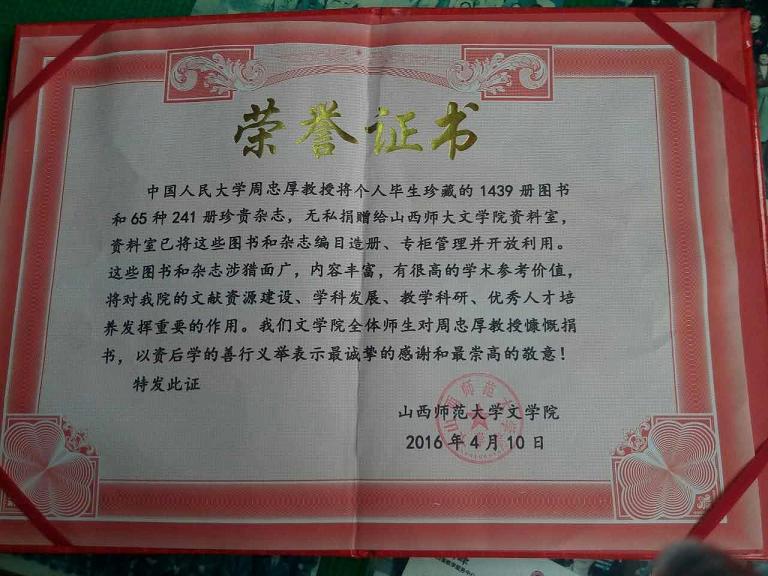 荣誉证书
中国人民大学周忠厚教授将个人毕生珍藏的 1439 册图书
和 65 种 241 册珍贵杂志，无私捐赠给山西师大文学院资料室，
资料室已将这些图书和杂志编目造册、专柜管理并开放利用。
这些图书和杂志涉猎面广，内容丰富，有很高的学术参考价值，
将对我院的文献资源建设、学科发展、教学科研、优秀人才培
养发挥重要的作用。我们文学院全体师生对周忠厚教授慷慨捐
书，以资后学的善行义举表示最诚挚的感谢和最崇高的敬意！
特发此证
山西师范大学文学院
2016 年 4 月 10 日